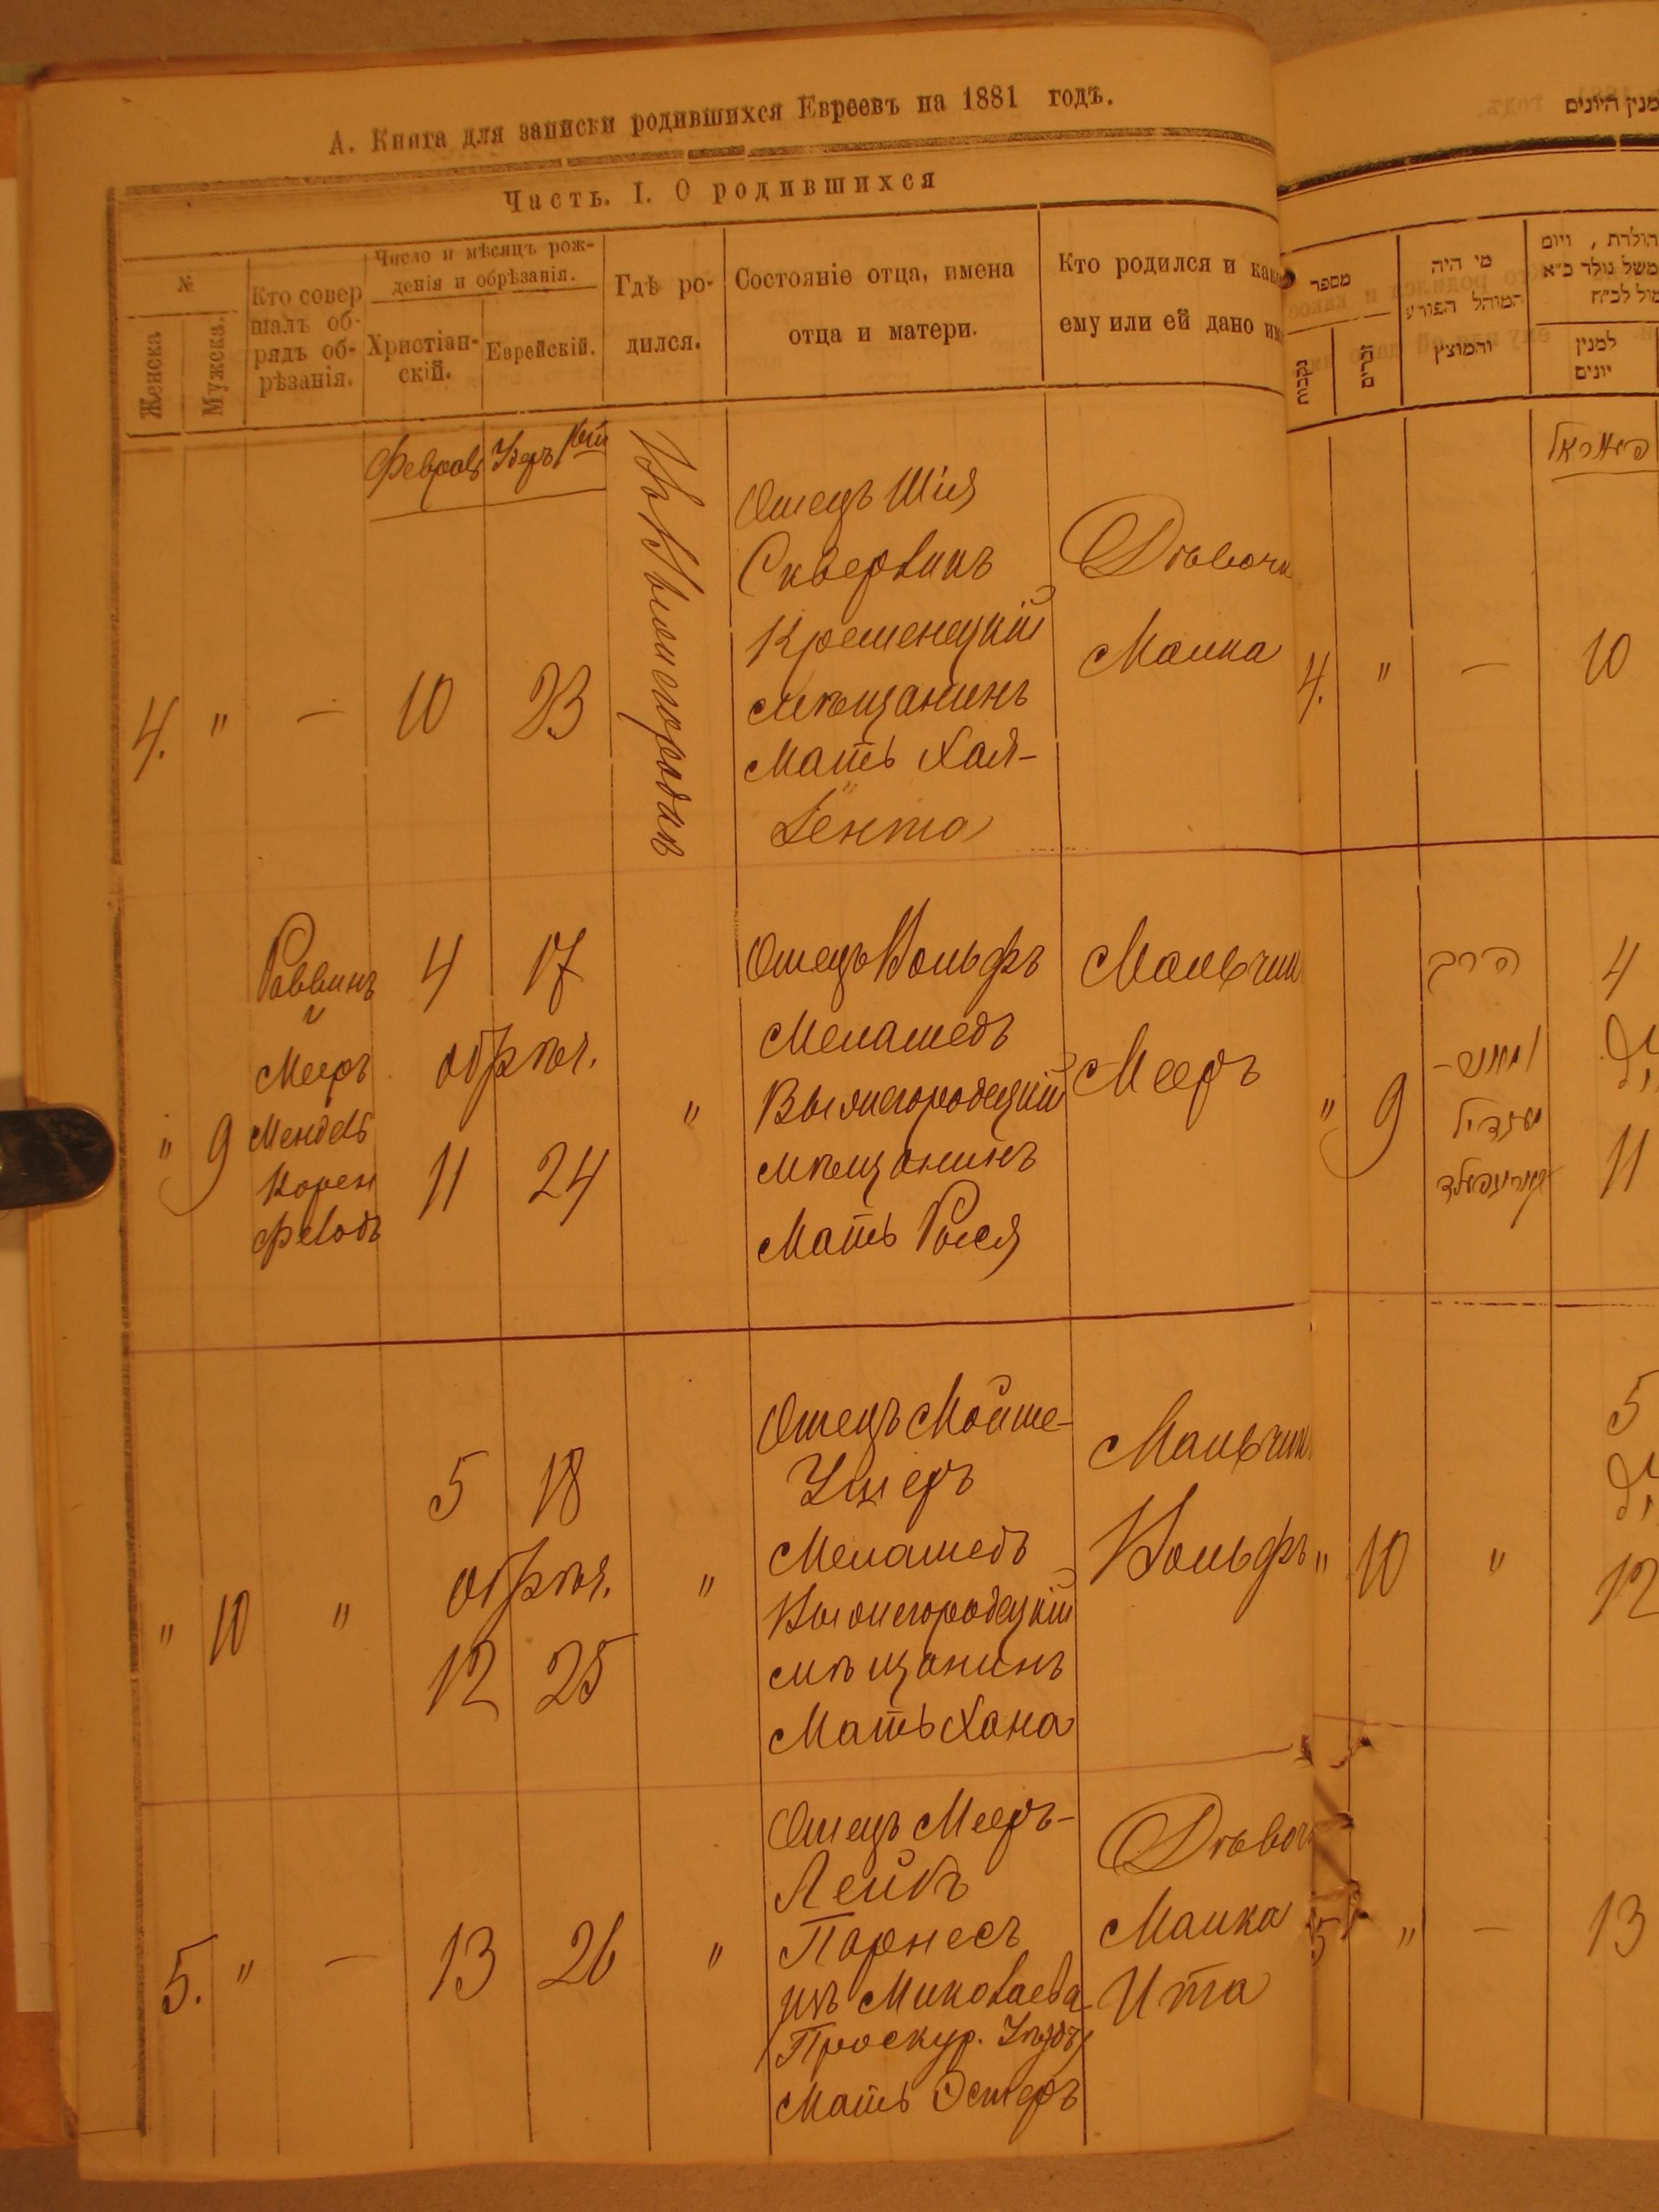 А. Книга для записки родившихся Евреевъ на 1881 годъ.
Часть. I. О родившихся
№
Женска
Мужска.
Кто совер
шалъ об-
рядъ об-
рѣзанія.
Число и мѣсяцъ рож-
денія и обрѣзанія.
Христіан-
скій.
Еврейскій.
Гдѣ ро-
дился.
Состояніе отца, имена
отца и матери.
Кто родился и как
ему или ей дано им
Февраль Удеръ
4. " — 10 23
Въ Вышегородкѣ
Отецъ Шия
Скверликъ
Кременецкій
мѣщанинъ
Мать Хая-
Ента
Дѣвочк
Малка
" 9
Раввинъ
и
Мееръ
Мендель
Корен
фельдъ
4 17
обрѣз.
11 24
"
Отецъ Вольфъ
Меламедъ
Вышегородецкій
мѣщанинъ
Мать Рыся
Мальчик
Мееръ
" 10 "
5 18
обрѣз.
12 25
"
Отецъ Мойше-
Ушеръ
Меламедъ
Вышегородецкій
мѣщанинъ
Мать Хана
Мальчик
Вольфъ
5. " — 13 26 "
Отецъ Мееръ-
Лейбъ
Парнесъ
изъ Миколаева
Проскур. Уѣзда
Мать Эстеръ
Дѣвоч
Малка
Ита
מנין היונים
מספר
נקבות
זכרים
מי היה
המוהל הפורע
והמוצץ
הולדת , ויום
משל נולד כ״א
מול לכ״ח
למנין
יונים
פעברואר
4. " — 10
" 9
הרב
ומאיר
מענדיל
קארינפעלד
4
11
" 10 "
5
12
5 " — 13